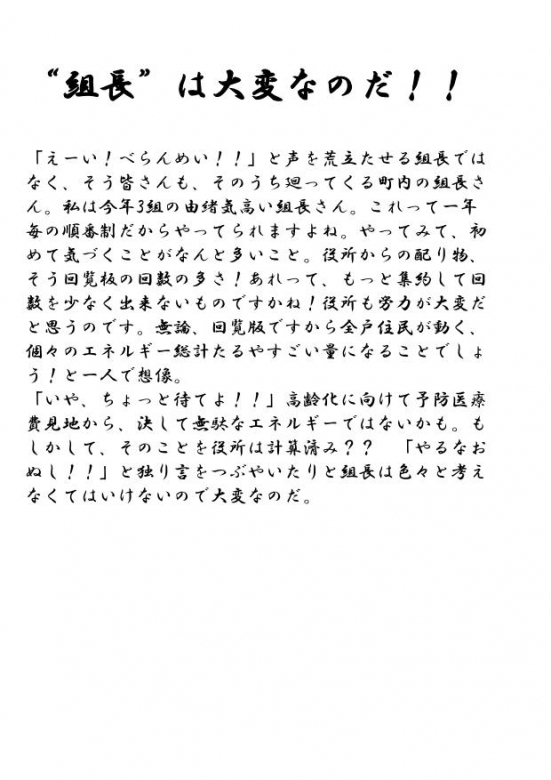 “組長”は大変なのだ！！
「えーい！べらんめい！！」と声を荒立たせる組長では
なく、そう皆さんも、そのうち廻ってくる町内の組長さ
ん。私は今年3組の由緒気高い組長さん。これって一年
毎の順番制だからやってられますよね。やってみて、初
めて気づくことがなんと多いこと。役所からの配り物、
そう回覧板の回数の多さ！あれって、もっと集約して回
数を少なく出来ないものですかね！役所も労力が大変だ
と思うのです。無論、回覧版ですから全戸住民が動く、
個々のエネルギー総計たるやすごい量になることでしょ
う！と一人で想像。
「いや、ちょっと待てよ！！」高齢化に向けて予防医療
費見地から、決して無駄なエネルギーではないかも。も
しかして、そのことを役所は計算済み？？　「やるなお
ぬし！！」と独り言をつぶやいたりと組長は色々と考え
なくてはいけないので大変なのだ。